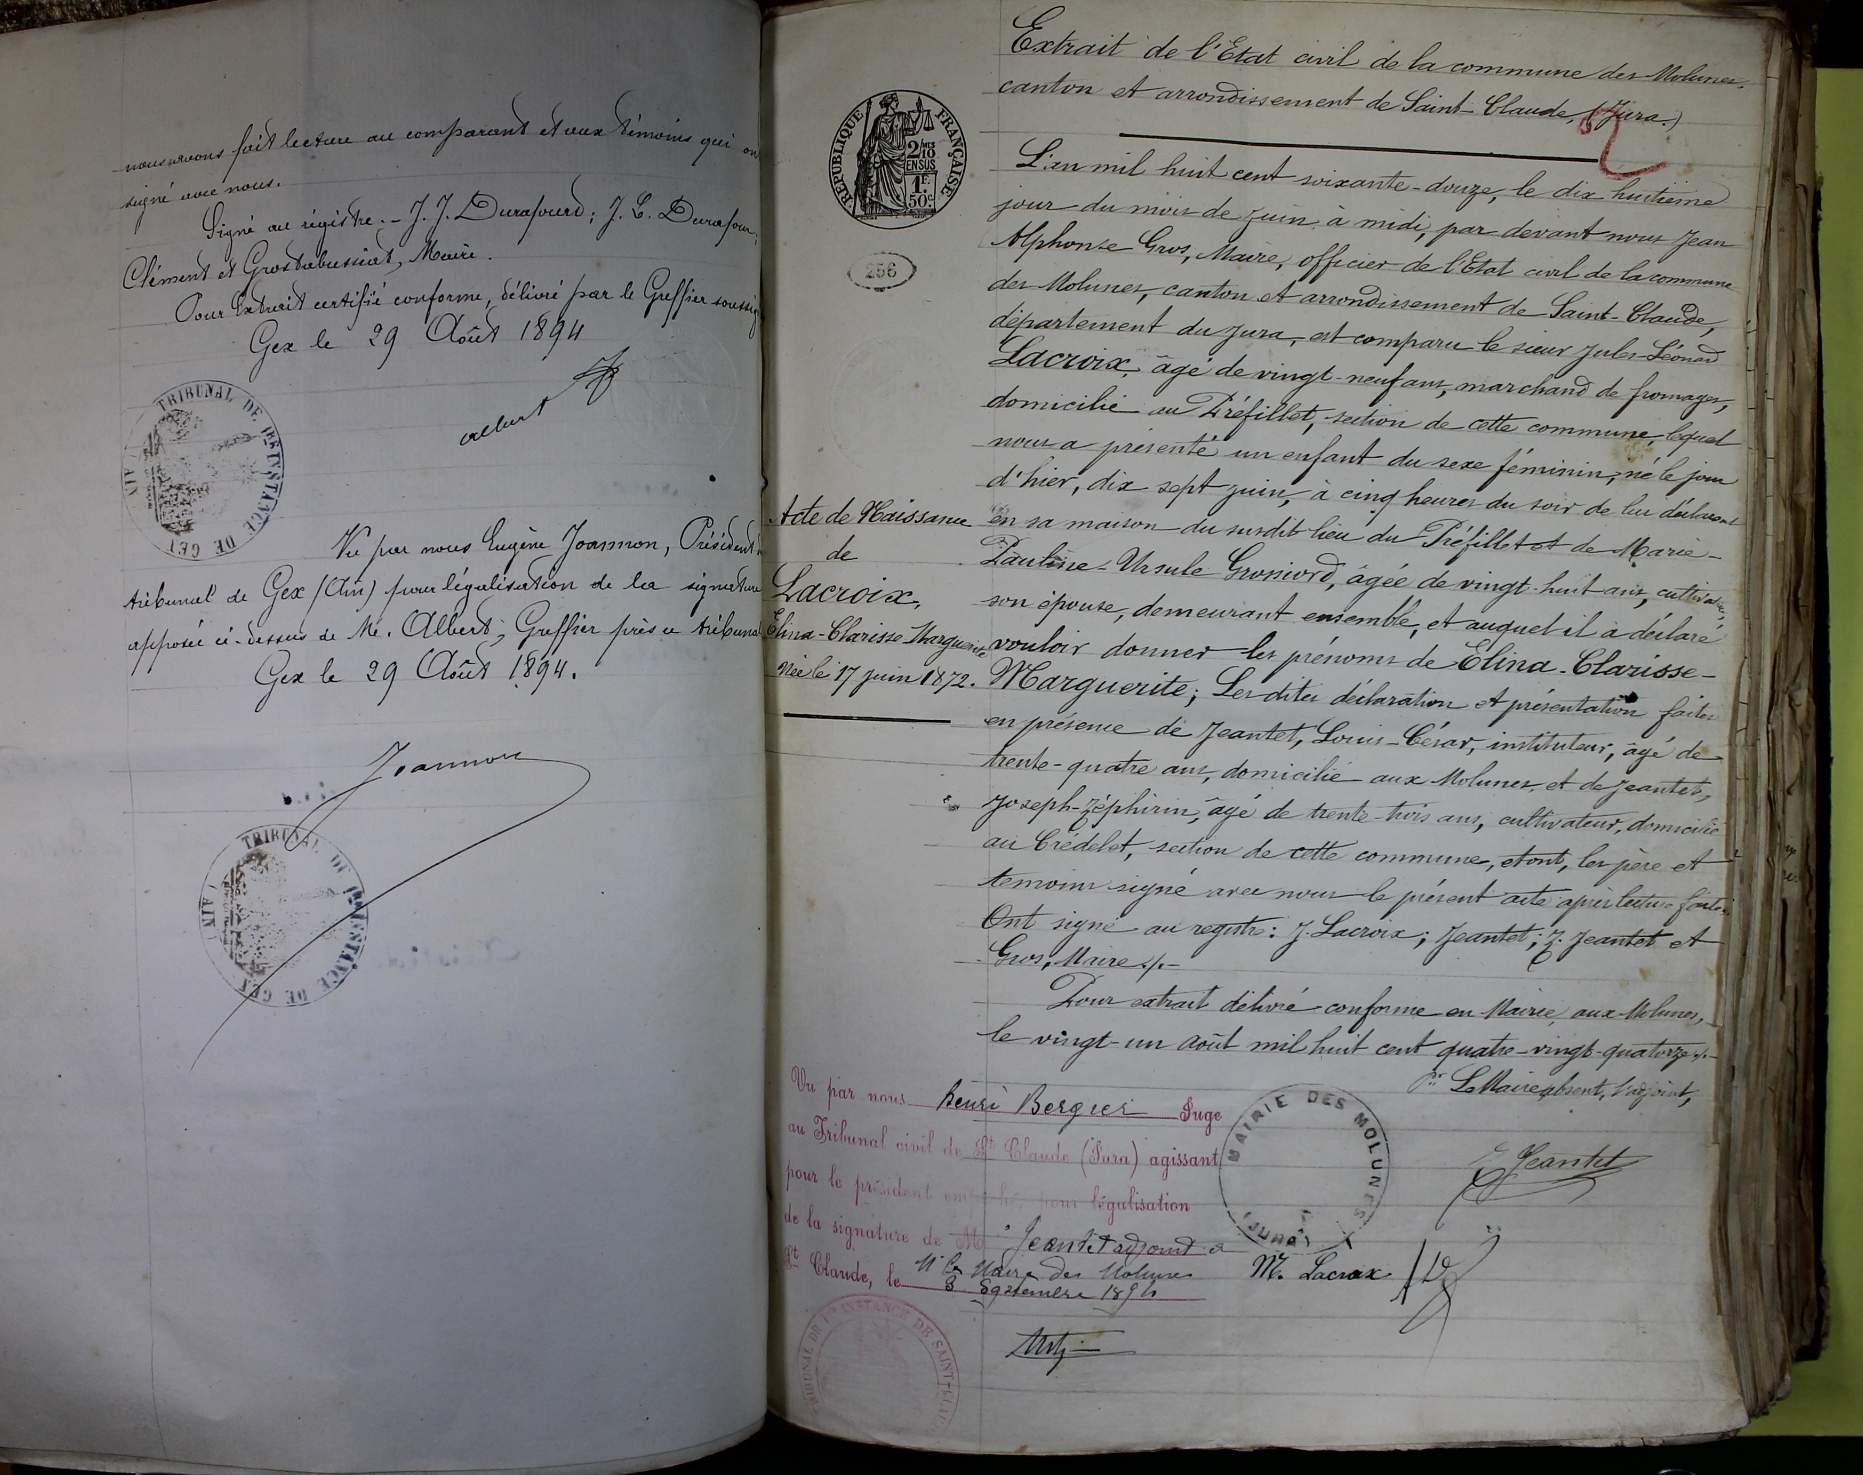 nous avons fait lecture au comparant et aux témoins qui on
signé avec nous.
Signé au régistre. - J. J. Durafourd; J. C. Durafour;
Clément et Grostabussiat, Maire.
Pour Extrait certifié conforme, délivré par le Greffier soussig
Gex le 29 Août 1894
Albert
TRIBUNAL DE 1ère INSTANCE DE GEX (AIN)
Vu par nous Eugène Joannon, Président
tribunal de Gex (Ain) pour légalisation de la signature
apposée ci-dessus de Me. Albert, Greffier près ce tribunal
Gex le 29 Août 1894.
Joannon
TRIBUNAL DE 1ère INSTANCE DE GEX (AIN)
Extrait de l'Etat civil de la commune des Molunes,
canton et arrondissement de Saint-Claude, (Jura.)
RÉPUBLIQUE FRANÇAISE
2/10 EN SUS
1F. 50c.
256
L'an mil huit cent soixante-douze, le dix huitième
jour du mois de juin à midi, par devant nous Jean
Alphonse Gros, Maire, officier de l'Etat civil de la commune
des Molunes, canton et arrondissement de Saint-Claude,
département du Jura, est comparu le sieur Jules-Léonard
Lacroix, âgé de vingt-neuf ans, marchand de fromages,
domicilié au Préfillet, section de cette commune, lequel
nous a présenté un enfant du sexe féminin, né le jour
d'hier, dix sept juin, à cinq heures du soir de lui déclarant
en sa maison du susdit lieu du Préfillet et de Marie-
Pauline-Ursule Grossiord, âgée de vingt-huit ans, cultivatrice,
son épouse, demeurant ensemble, et auquel il a déclaré
vouloir donner les prénoms de Elina-Clarisse-
Marguerite; Les dites déclaration et présentation faites
en présence de Jeantet, Louis-César, instituteur, âgé de
trente-quatre ans, domicilié aux Molunes, et de Jeantet,
Joseph-Zéphirin, âgé de trente-trois ans, cultivateur, domicilié
au Crédelet, section de cette commune, et ont, les père et
témoins signé avec nous le présent acte après lecture faite.
Ont signé au registre: J. Lacroix; Jeantet; Z. Jeantet et
Gros, Maire./.-
Acte de Naissance
de
Lacroix,
Elina-Clarisse Marguerite
Née le 17 juin 1872.
Pour extrait délivré conforme en Mairie, aux Molunes,
le vingt-un août mil huit cent quatre-vingt-quatorze./.-
Pr. Le Maire absent, l'adjoint,
Z. Jeantet
MAIRIE DES MOLUNES (JURA)
Vu par nous Henri Bergier Juge
au Tribunal civil de St Claude (Jura) agissant
pour le président empêché, pour légalisation
de la signature de M Jeantet adjoint à
Mr le Maire des Molunes
St Claude, le 3 Septembre 1894
M. Lacroix
TRIBUNAL DE 1re INSTANCE DE SAINT-CLAUDE